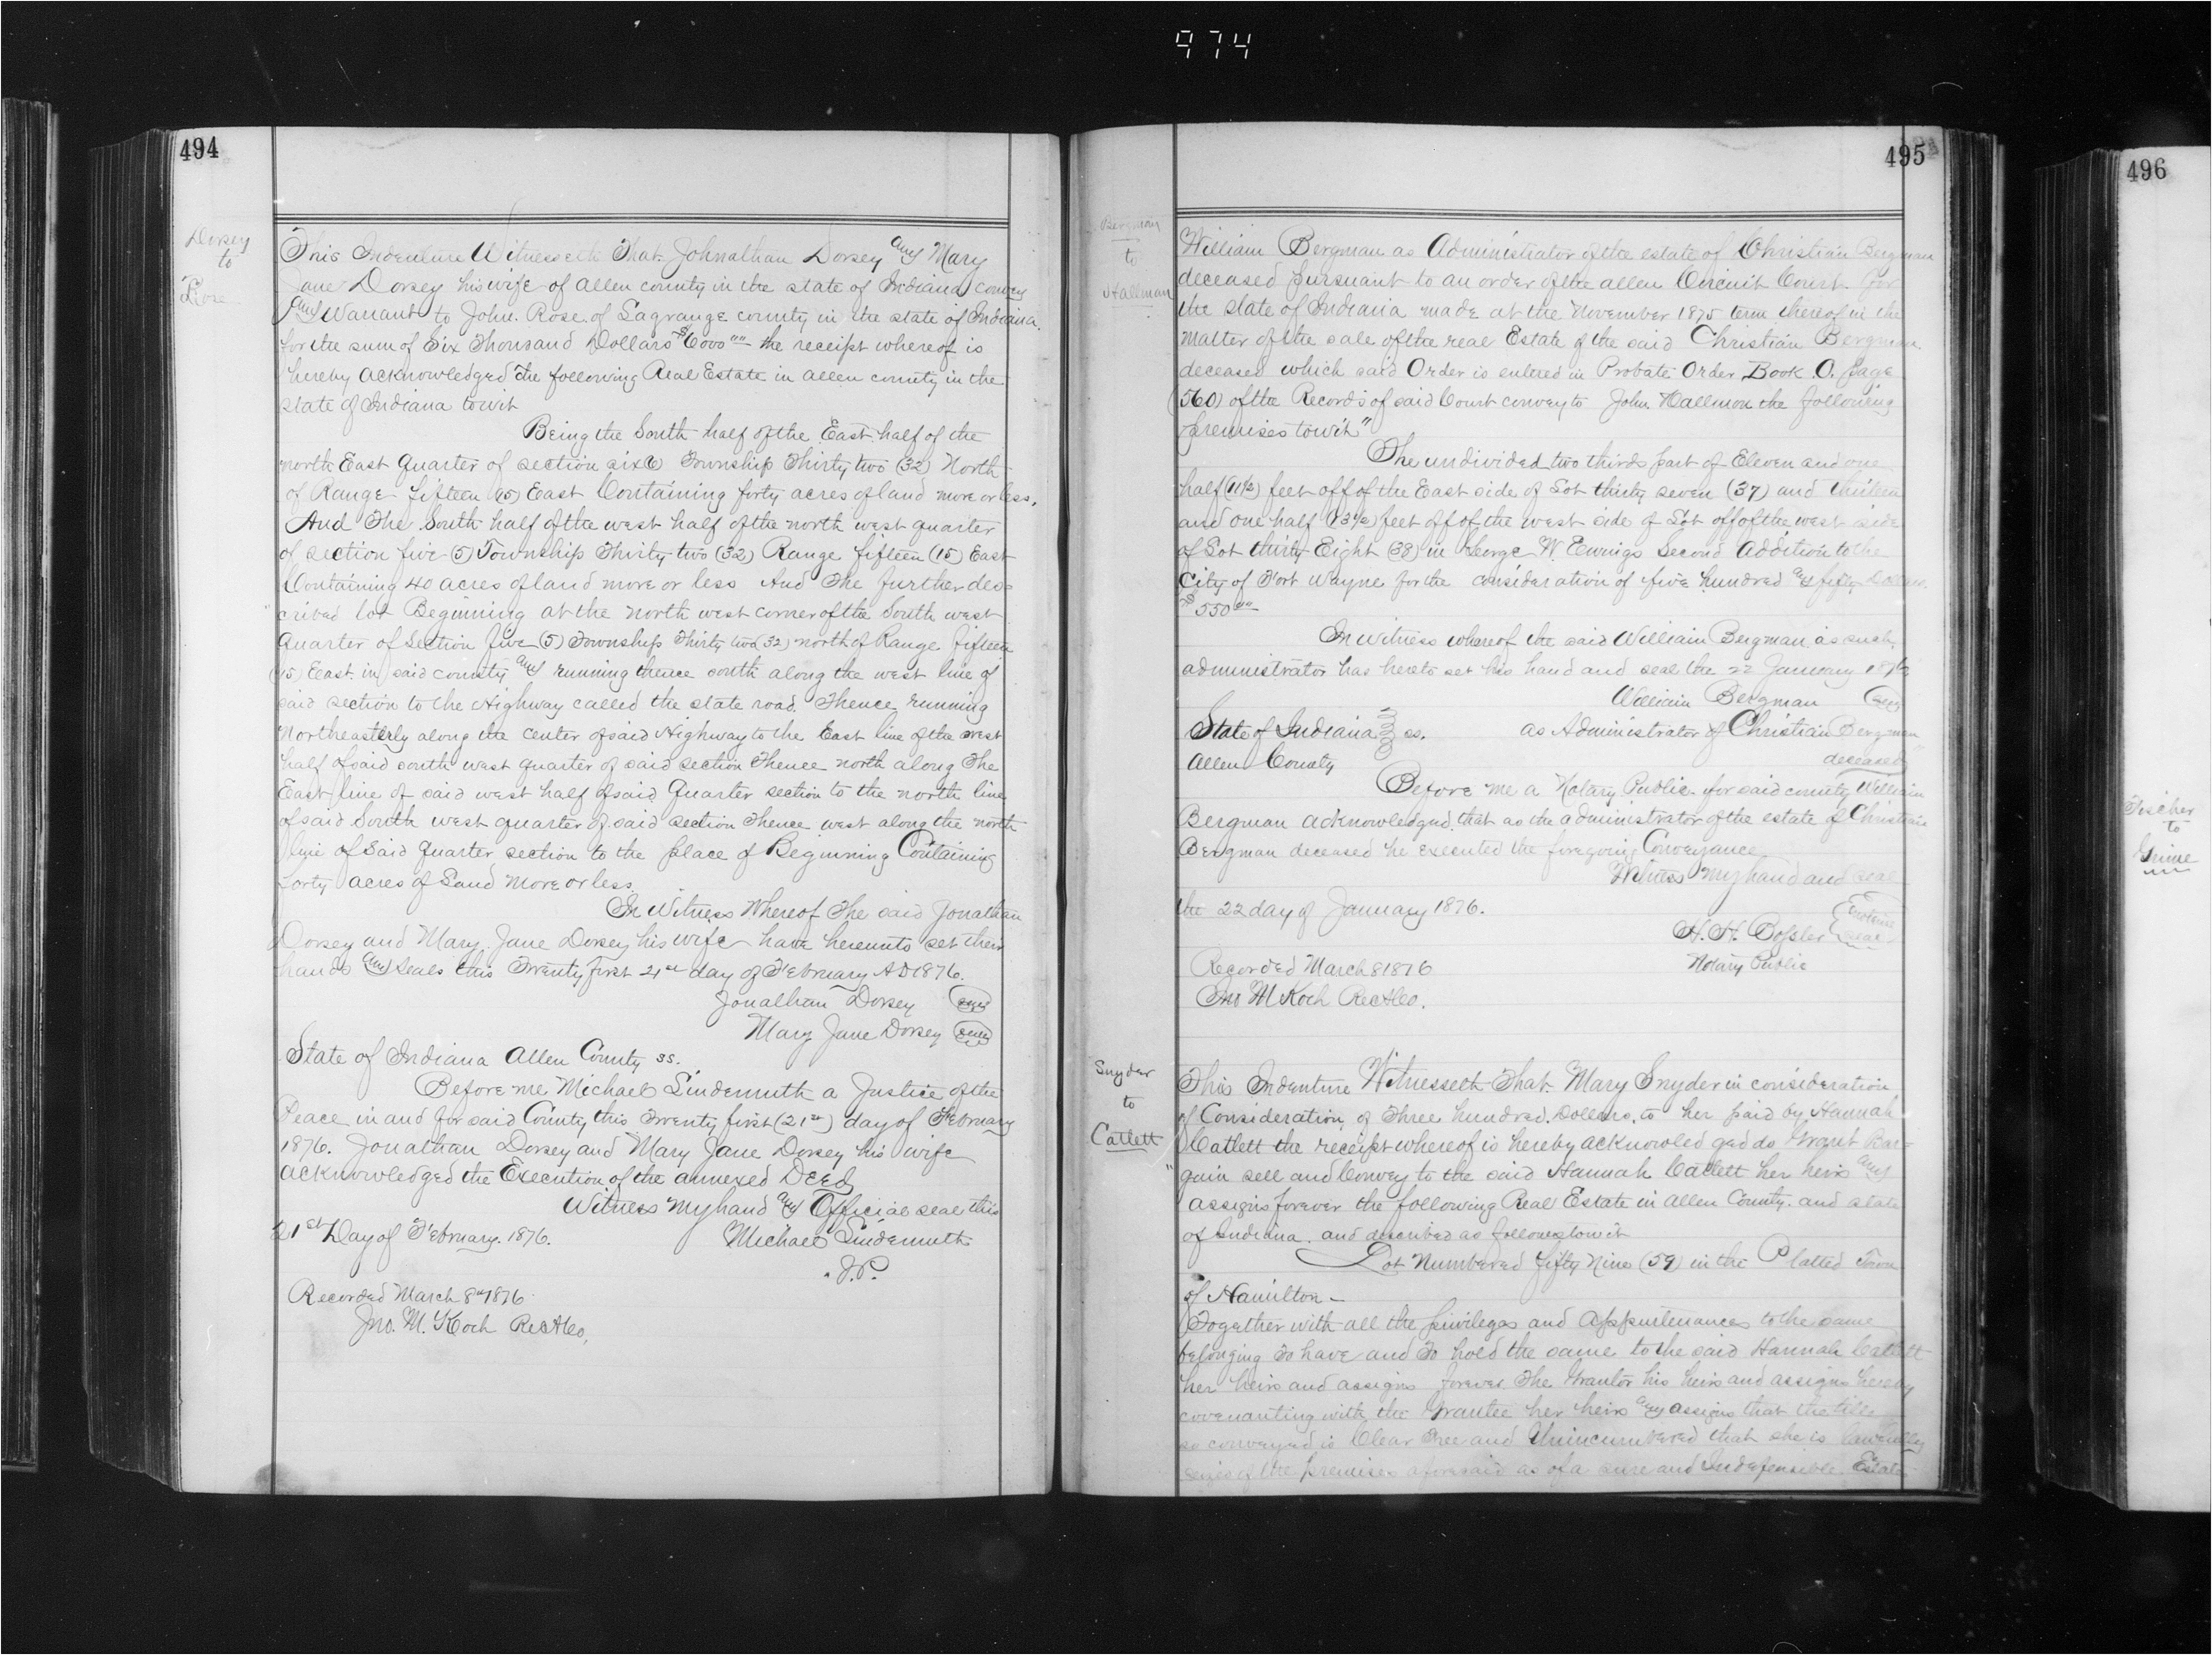 974
494
Dorsey
to
Rose
This Indenture Witnesseth That Johnathan Dorsey and Mary
Jane Dorsey his wife of Allen county in the state of Indiana convey
and Warrant to John Rose of Lagrange county in the state of Indiana
for the sum of Six Thousand Dollars $6000 00 the receipt whereof is
hereby acknowledged the following Real Estate in Allen county in the
state of Indiana towit
Being the South half of the East half of the
north East Quarter of section six (6) Township Thirty two (32) North
of Range fifteen (15) East Containing forty acres of land more or less.
And The South half of the west half of the north west quarter
of section five (5) Township Thirty two (32) Range fifteen (15) East
Containing 40 acres of land more or less And The further des-
cribed lot Beginning at the north west corner of the South west
Quarter of Section five (5) Township Thirty two (32) north of Range fifteen
(15) East in said county and running thence south along the west line of
said section to the Highway called the state road. Thence running
Northeasterly along the center of said Highway to the East line of the west
half of said south west quarter of said section Thence north along The
East line of said west half of said Quarter section to the north line
of said South west quarter of said section Thence west along the north
line of said Quarter section to the place of Beginning Containing
forty acres of Land more or less.
In Witness Whereof The said Jonathan
Dorsey and Mary Jane Dorsey his wife have hereunto set their
hands and seals this Twenty first 21st day of February AD 1876.
Jonathan Dorsey (seal)
Mary Jane Dorsey (seal)
State of Indiana Allen County ss.
Before me Michael Lindemuth a Justice of the
Peace in and for said County this Twenty first (21st) day of February
1876. Jonathan Dorsey and Mary Jane Dorsey his wife
acknowledged the Execution of the annexed Deed
Witness my hand and Official seal this
21st Day of February. 1876. Michael Lindemuth
J.P.
Recorded March 8th 1876
Jno. M. Koch Rec A Co.
495
Bergman
to
Hallman
William Bergman as Administrator of the estate of Christian Bergman
deceased pursuant to an order of the Allen Circuit Court for
the state of Indiana made at the November 1875 term thereof in the
matter of the sale of the real Estate of the said Christian Bergman
deceased which said Order is entered in Probate Order Book O. page
(560) of the Records of said Court convey to John Hallmon the following
premises towit"
The undivided two thirds part of Eleven and one
half (11½) feet off of the East side of Lot thirty seven (37) and thirteen
and one half (13½) feet off of the west side of Lot off of the west side
of Lot thirty Eight (38) in George W. Ewings Second Addition to the
City of Fort Wayne for the consideration of five hundred and fifty Dollars
$550 00
In witness whereof the said William Bergman as such
administrator has hereto set his hand and seal the 22 January 1876
William Bergman (seal)
State of Indiana } ss. as Administrator of Christian Bergman
Allen County deceased
Before me a Notary Public for said county William
Bergman acknowledged that as the administrator of the estate of Christian
Bergman deceased he executed the foregoing Conveyance
Witness my hand and seal
the 22 day of January 1876.
H. H. Bossler
Notary Public
Recorded March 8 1876
Jno M Koch Rec A Co.
Snyder
to
Catlett
This Indenture Witnesseth That Mary Snyder in consideration
of Consideration of Three hundred Dollars, to her paid by Hannah
Catlett the receipt whereof is hereby acknowledged do Grant Bar=
gain sell and Convey to the said Hannah Catlett her heirs and
assigns forever the following Real Estate in Allen County. and state
of Indiana. and described as follows towit
Lot Numbered fifty Nine (59) in the Platted Town
of Hamilton -
Together with all the privileges and Appurtenances to the same
belonging To have and To hold the same to the said Hannah Catlett
her heirs and assigns forever. The Grantor his heirs and assigns hereby
covenanting with the Grantee her heirs and assigns that the title
so conveyed is Clear Free and Unincumbered that she is lawfully
seized of the premises aforesaid as of a sure and Indefensible Estate
496
Fischer
to